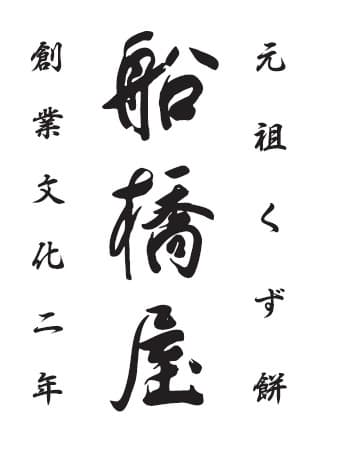 元祖くず餅
船橋屋
創業文化二年